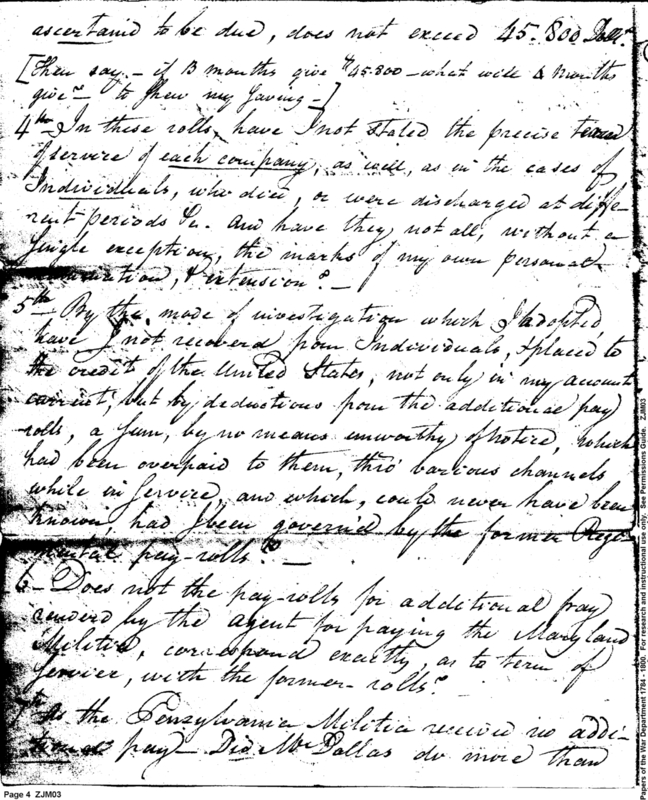 ascertained to be due, does not exceed 45.800 Dolls.
[then say – if 13 months give $45.800 – what will 4 months
give – to shew my saving –]
4th – In these rolls, have I not stated the precise term
of service of each company, as well, as in the cases of
Individuals, who died, or were discharged at diffe-
rent periods &c. and have they not all, without a
single exception, the marks of my own personal
& extension? –
5th – By the mode of investigation which I adopted,
have I not recovered from Individuals, & placed to
the credit of the United States, not only in my account
current, but by deductions from the additional pay
rolls, a sum, by no means unworthy of notice, which
had been overpaid to them, thro' various channels
while in service, and which, could never have been
known, had I been governed by the former Regi-
mental pay-rolls? –
6 – Does not the pay-rolls for additional pay
rendered by the agent for paying the Maryland
Militia, correspond exactly, as to term of
service, with the former rolls?
7th As the Pensylvania Militia received no addi-
tional pay – Did Mr Dallas do more than
Page 4 ZJM03
Papers of the War Department 1784 - 1800. For research and instructional use only. See Permissions Guide. ZJM03